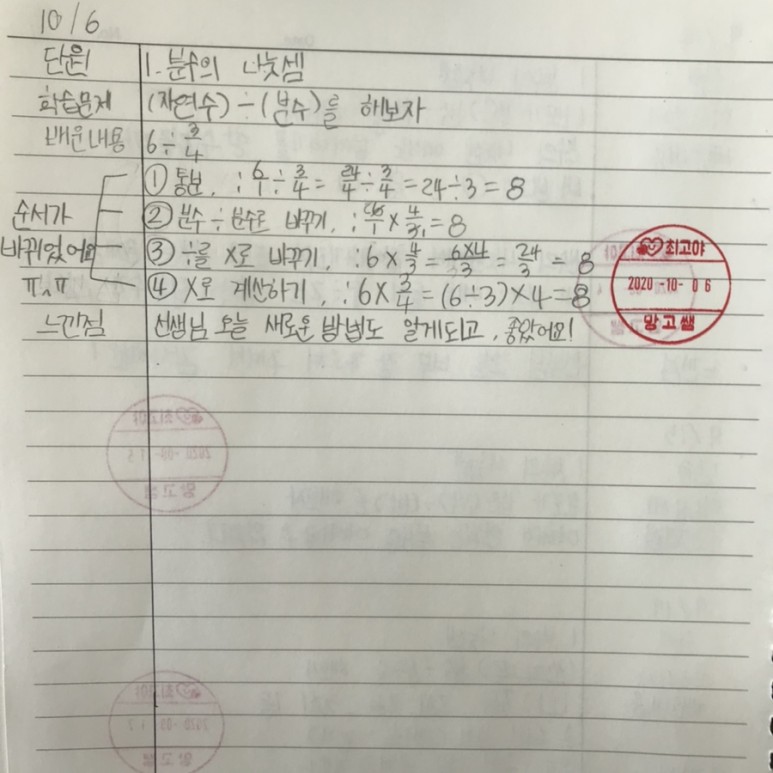 10/6
단원 1. 분수의 나눗셈
학습문제 (자연수)÷(분수)를 해보자
배운내용 6÷3/4
① 통분, : 6/1÷3/4=24/4÷3/4=24÷3=8
순서가 ② 분수÷분수로 바꾸기, : 6/1×4/3=8
바뀌었어요 ③ ÷를 X로 바꾸기, : 6×4/3=6×4/3=24/3=8
ㅠ^ㅠ ④ X로 계산하기, : 6×3/4=(6÷3)×4=8
느낀점 선생님 오늘 새로운 방법도 알게되고, 좋았어요!
최고야
2020-10-06
망고쌤